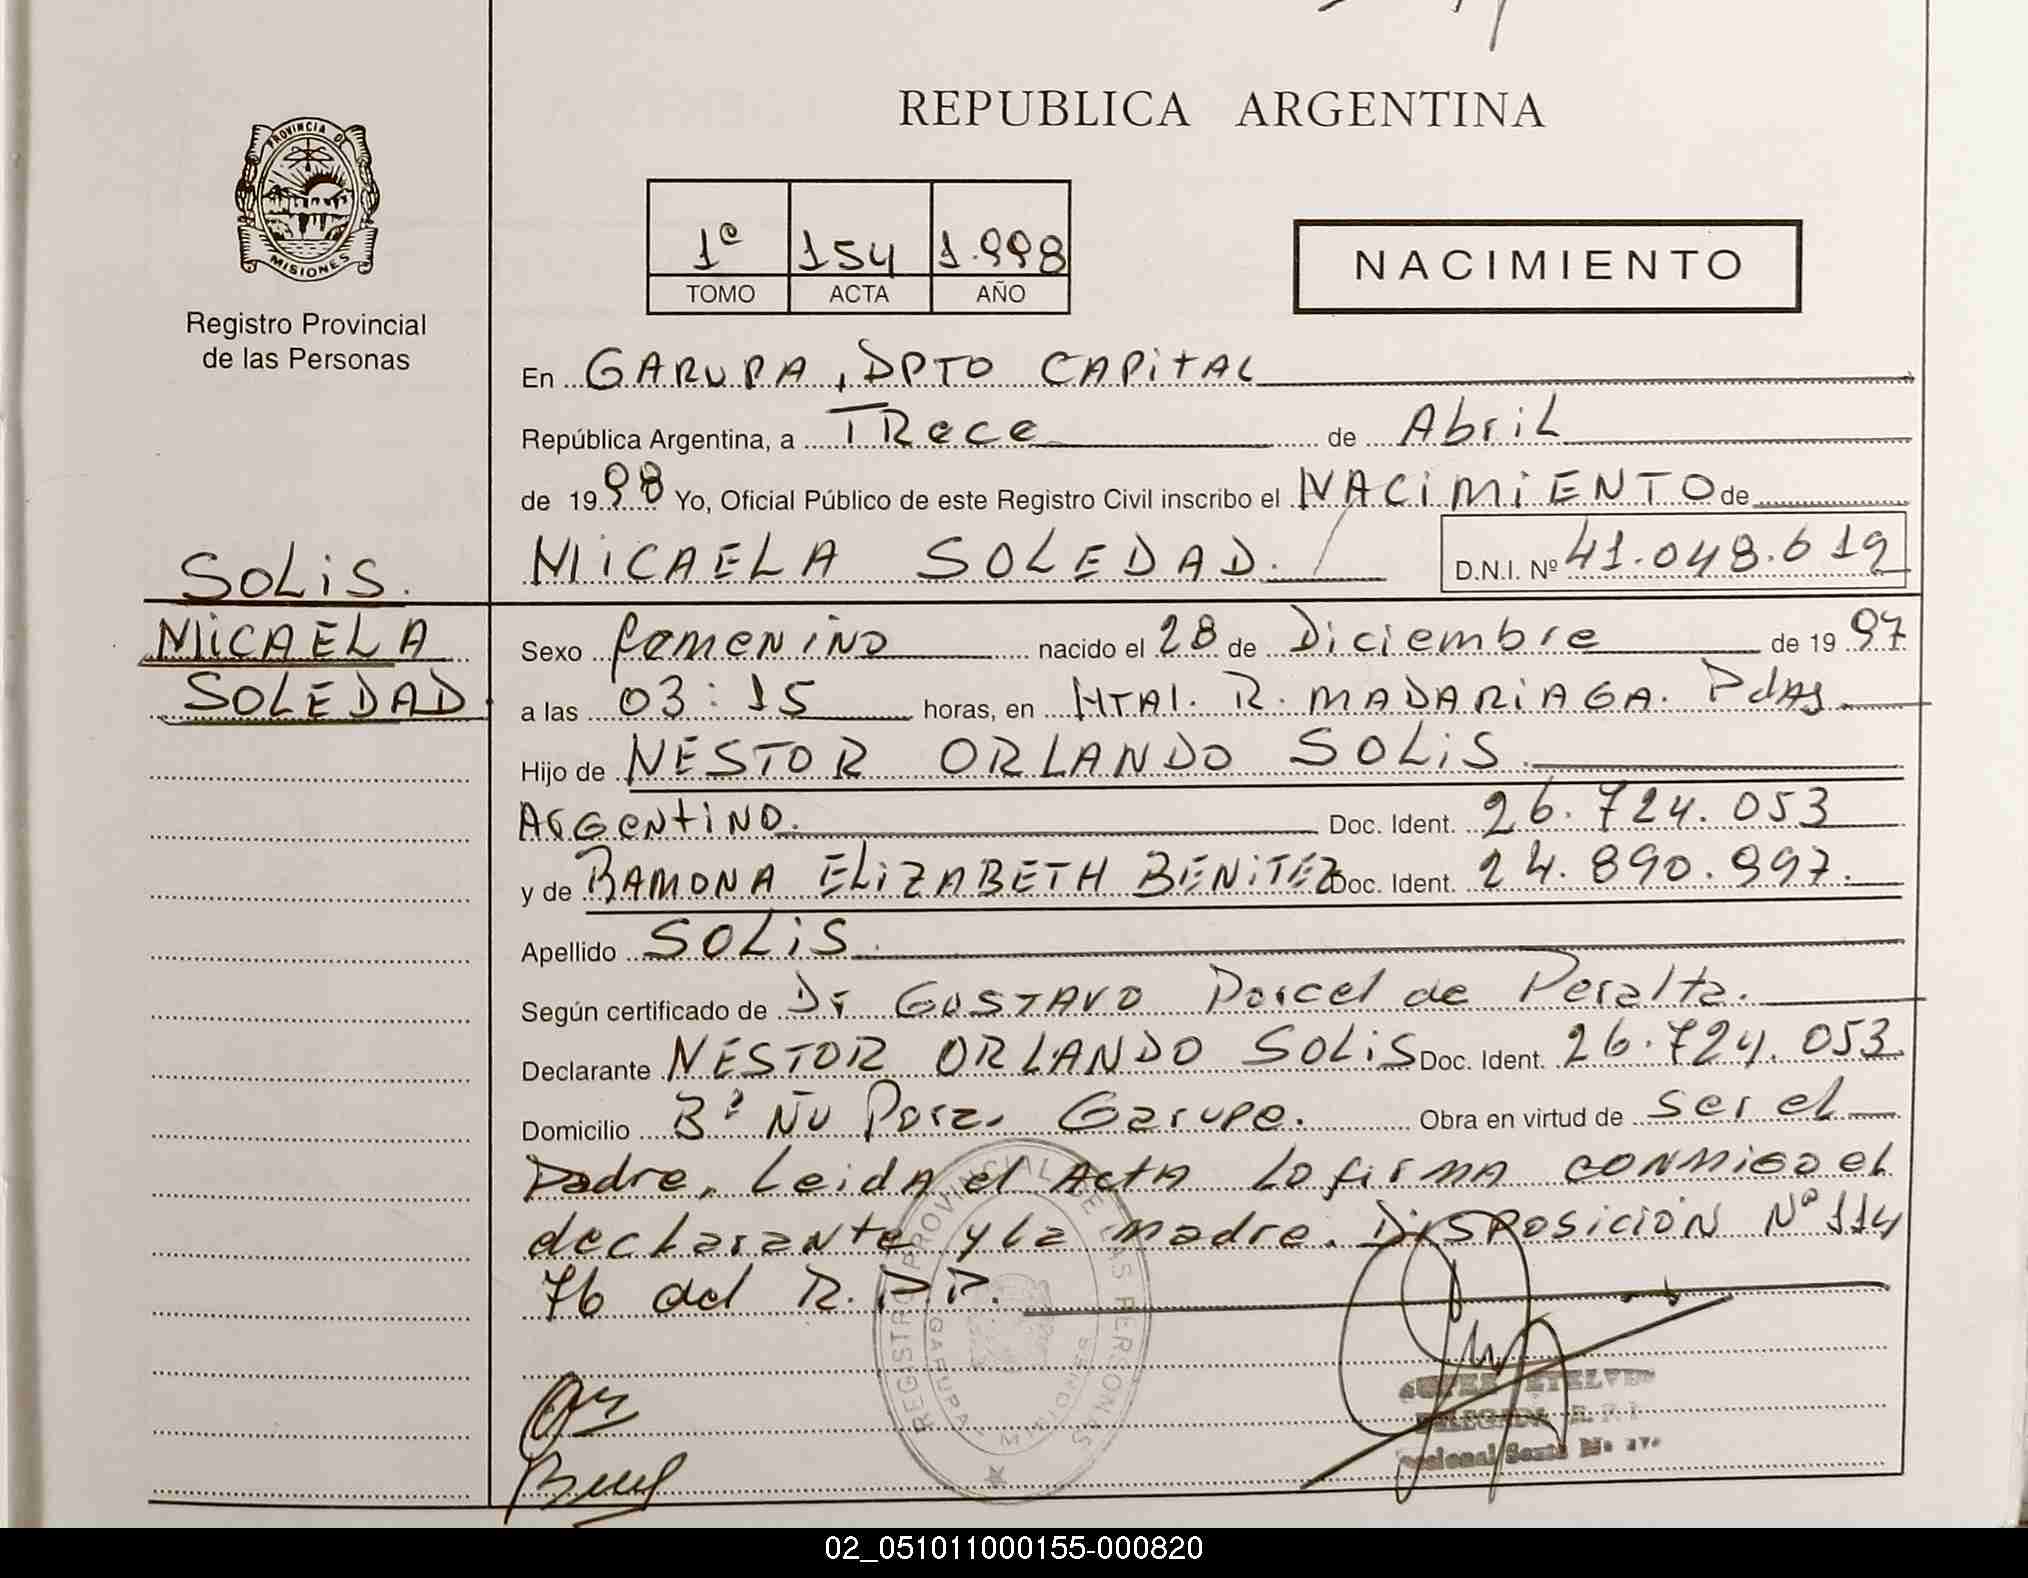 REPUBLICA ARGENTINA
PROVINCIA DE
MISIONES
Registro Provincial
de las Personas
1º 154 1.998
TOMO ACTA AÑO
NACIMIENTO
En GARUPA, DPTO CAPITAL
República Argentina, a TRece de Abril
de 1998 Yo, Oficial Público de este Registro Civil inscribo el NACIMIENTO de
MICAELA SOLEDAD. D.N.I. Nº 41.048.619
SOLIS.
MICAELA
SOLEDAD
Sexo femenino nacido el 28 de Diciembre de 1997
a las 03:15 horas, en HTAl. R. MADARIAGA. PdAs
Hijo de NESTOR ORLANDO SOLIS
Argentino. Doc. Ident. 26.724.053
y de RAMONA ELIZABETH BENITEZ Doc. Ident. 24.890.997.
Apellido SOLIS
Según certificado de Dr GUSTAVO Porcel de Peralta.
Declarante NESTOR ORLANDO SOLIS Doc. Ident. 26.724.053
Domicilio Bº Ñu Pora, Garupa. Obra en virtud de ser el
Padre, Leida el Acta Lo firma conmigo el
declarante y la madre. Disposición Nº 114
76 del R.P.P.
REGISTRO PROVINCIAL DE LAS PERSONAS
GARUPA MISIONES
02_051011000155-000820